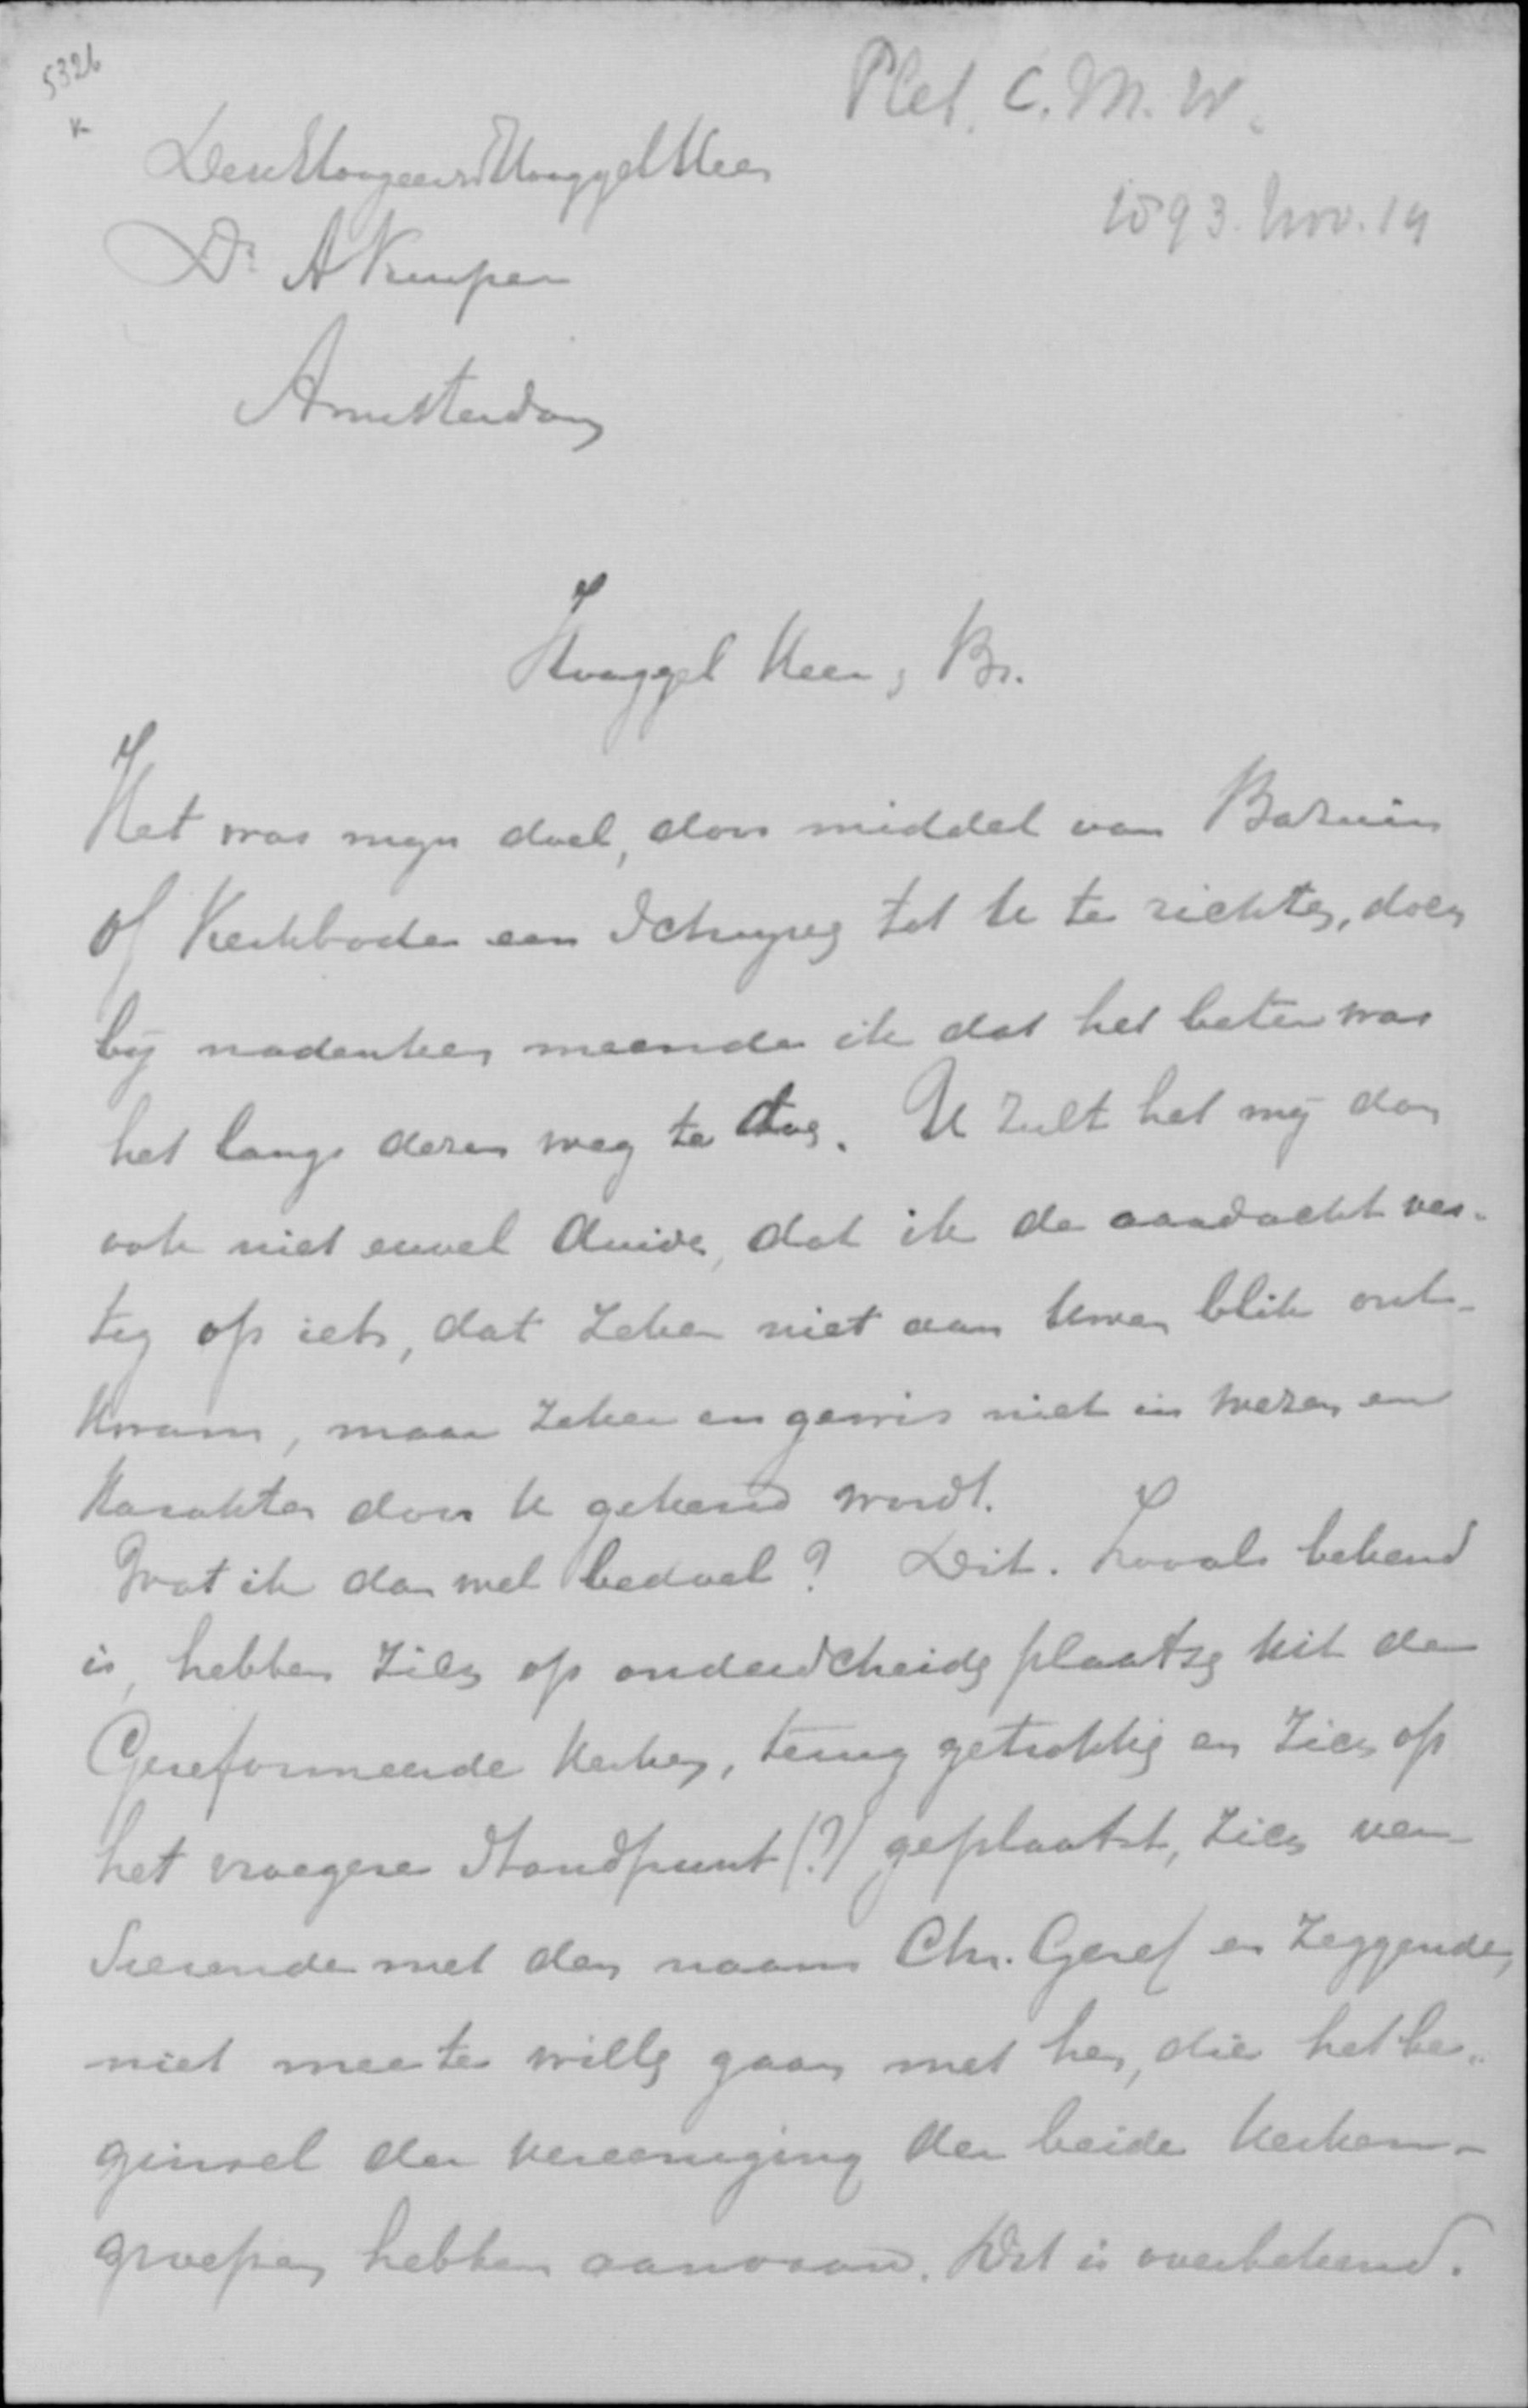 5326
K
Plet, C. M. W.
1893. Nov. 14
Den Hoogeerw Hooggel Heer
Dr A Kuyper
Amsterdam
Hooggel Heer, Br.
Het was mijn doel, door middel van Bazuin
of Kerkbode een schrijven tot U te richten, doch
bij nadenken meende ik dat het beter was
het langs dezen weg te doen. U zult het mij dan
ook niet euvel duiden, dat ik de aandacht ves-
tig op iets, dat zeker niet aan Uwen blik ont-
kwam, maar zeker en gewis niet in wezen en
karakter door U gekend wordt.
Wat ik dan wel bedoel? Dit. Zooals bekend
is, hebben zich op onderscheidene plaatsen uit de
Gereformeerde Kerken, terug getrokken en zich op
het vroegere standpunt (?) geplaatst, zich ver-
sierende met den naam Chr. Geref en zeggende,
niet mee te willen gaan met hen, die het be-
ginsel der vereeniging der beide Kerken-
groepen hebben aanvaard. Dit is overbekend.